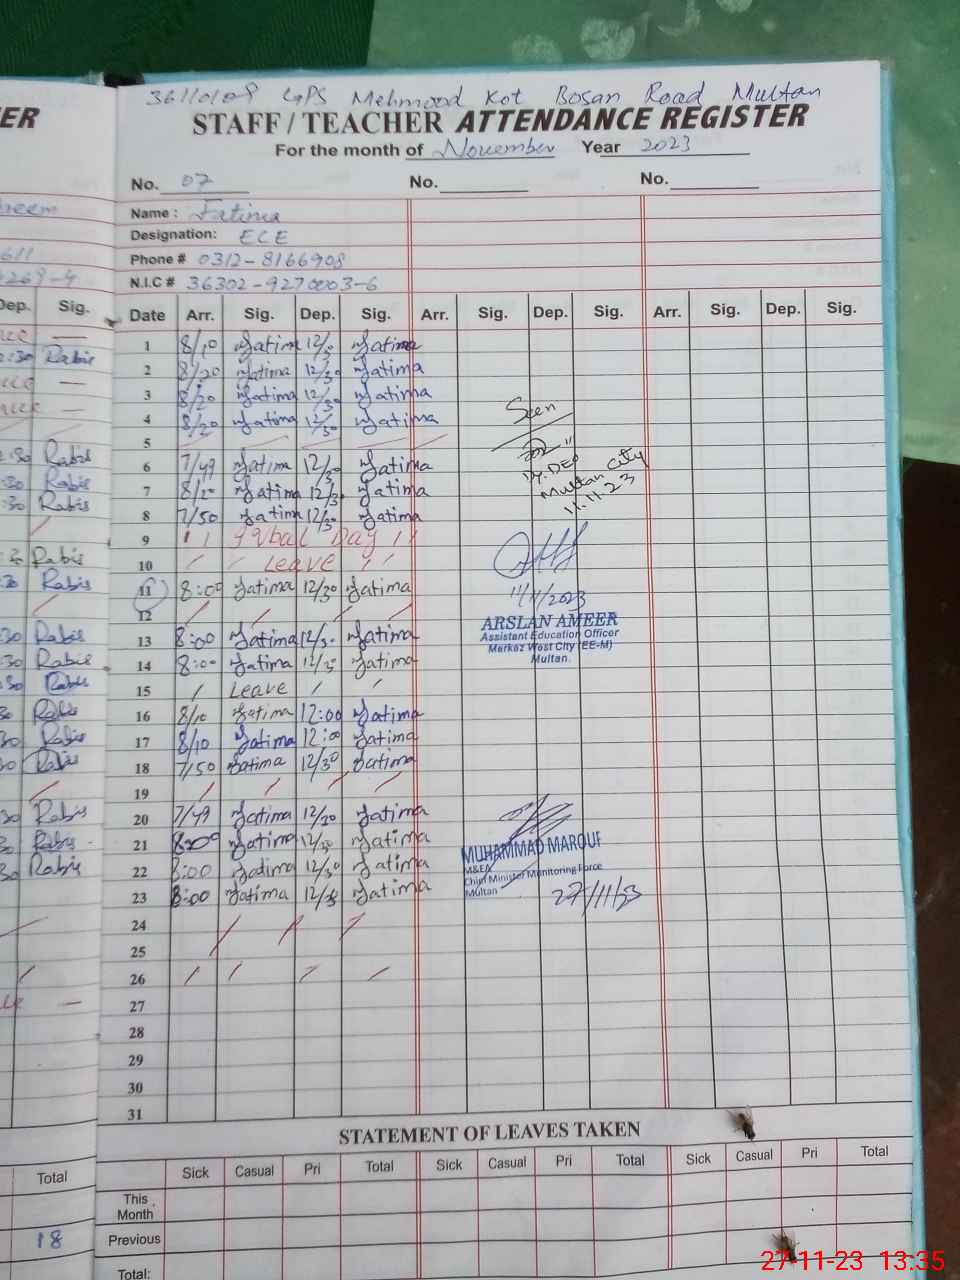 36110109 GPS Mehmood Kot Bosan Road Multan
ER
STAFF / TEACHER ATTENDANCE REGISTER
For the month of November Year 2023
No. 07 No. No.
Name : Fatima
Designation: ECE
Phone # 0312-8166908
N.I.C # 36302-9270003-6
Dep. Sig. Date Arr. Sig. Dep. Sig. Arr. Sig. Dep. Sig. Arr. Sig. Dep. Sig.
1 8/10 Fatima 12/30 Fatima
:30 Rabis 2 8/20 Fatima 12/30 Fatima
3 8/20 Fatima 12/30 Fatima
4 8/20 Fatima 12/30 Fatima
Seen
5
:30 Rabis 6 7/49 Fatima 12/30 Fatima
Dy.DEO
:30 Rabis 7 8/20 Fatima 12/30 Fatima
Multan City
:30 Rabis 8 7/50 Fatima 12/30 Fatima
11.11.23
9 Iqbal Day
:30 Rabis 10 Leave
:30 Rabis 11 8:00 Fatima 12/30 Fatima
11/11/2023
12
ARSLAN AMEER
Assistant Education Officer
Markaz West City (EE-M)
Multan.
:30 Rabis 13 8:00 Fatima 12/30 Fatima
:30 Rabis 14 8:00 Fatima 12/30 Fatima
:30 Rabis 15 Leave
30 Rabis 16 8/10 Fatima 12:00 Fatima
30 Rabis 17 8/10 Fatima 12:00 Fatima
30 Rabis 18 7/50 Fatima 12/30 Fatima
19
30 Rabis 20 7/49 Fatima 12/30 Fatima
30 Rabis 21 8:00 Fatima 12/30 Fatima
30 Rabis 22 8:00 Fatima 12/30 Fatima
23 8:00 Fatima 12/30 Fatima
MUHAMMAD MAROUF
M&EA
Chief Minister Monitoring Force
Multan
27/11/23
24
25
26
27
28
29
30
31
STATEMENT OF LEAVES TAKEN
Total Sick Casual Pri Total Sick Casual Pri Total Sick Casual Pri Total
This Month
18 Previous
Total:
27-11-23 13:35